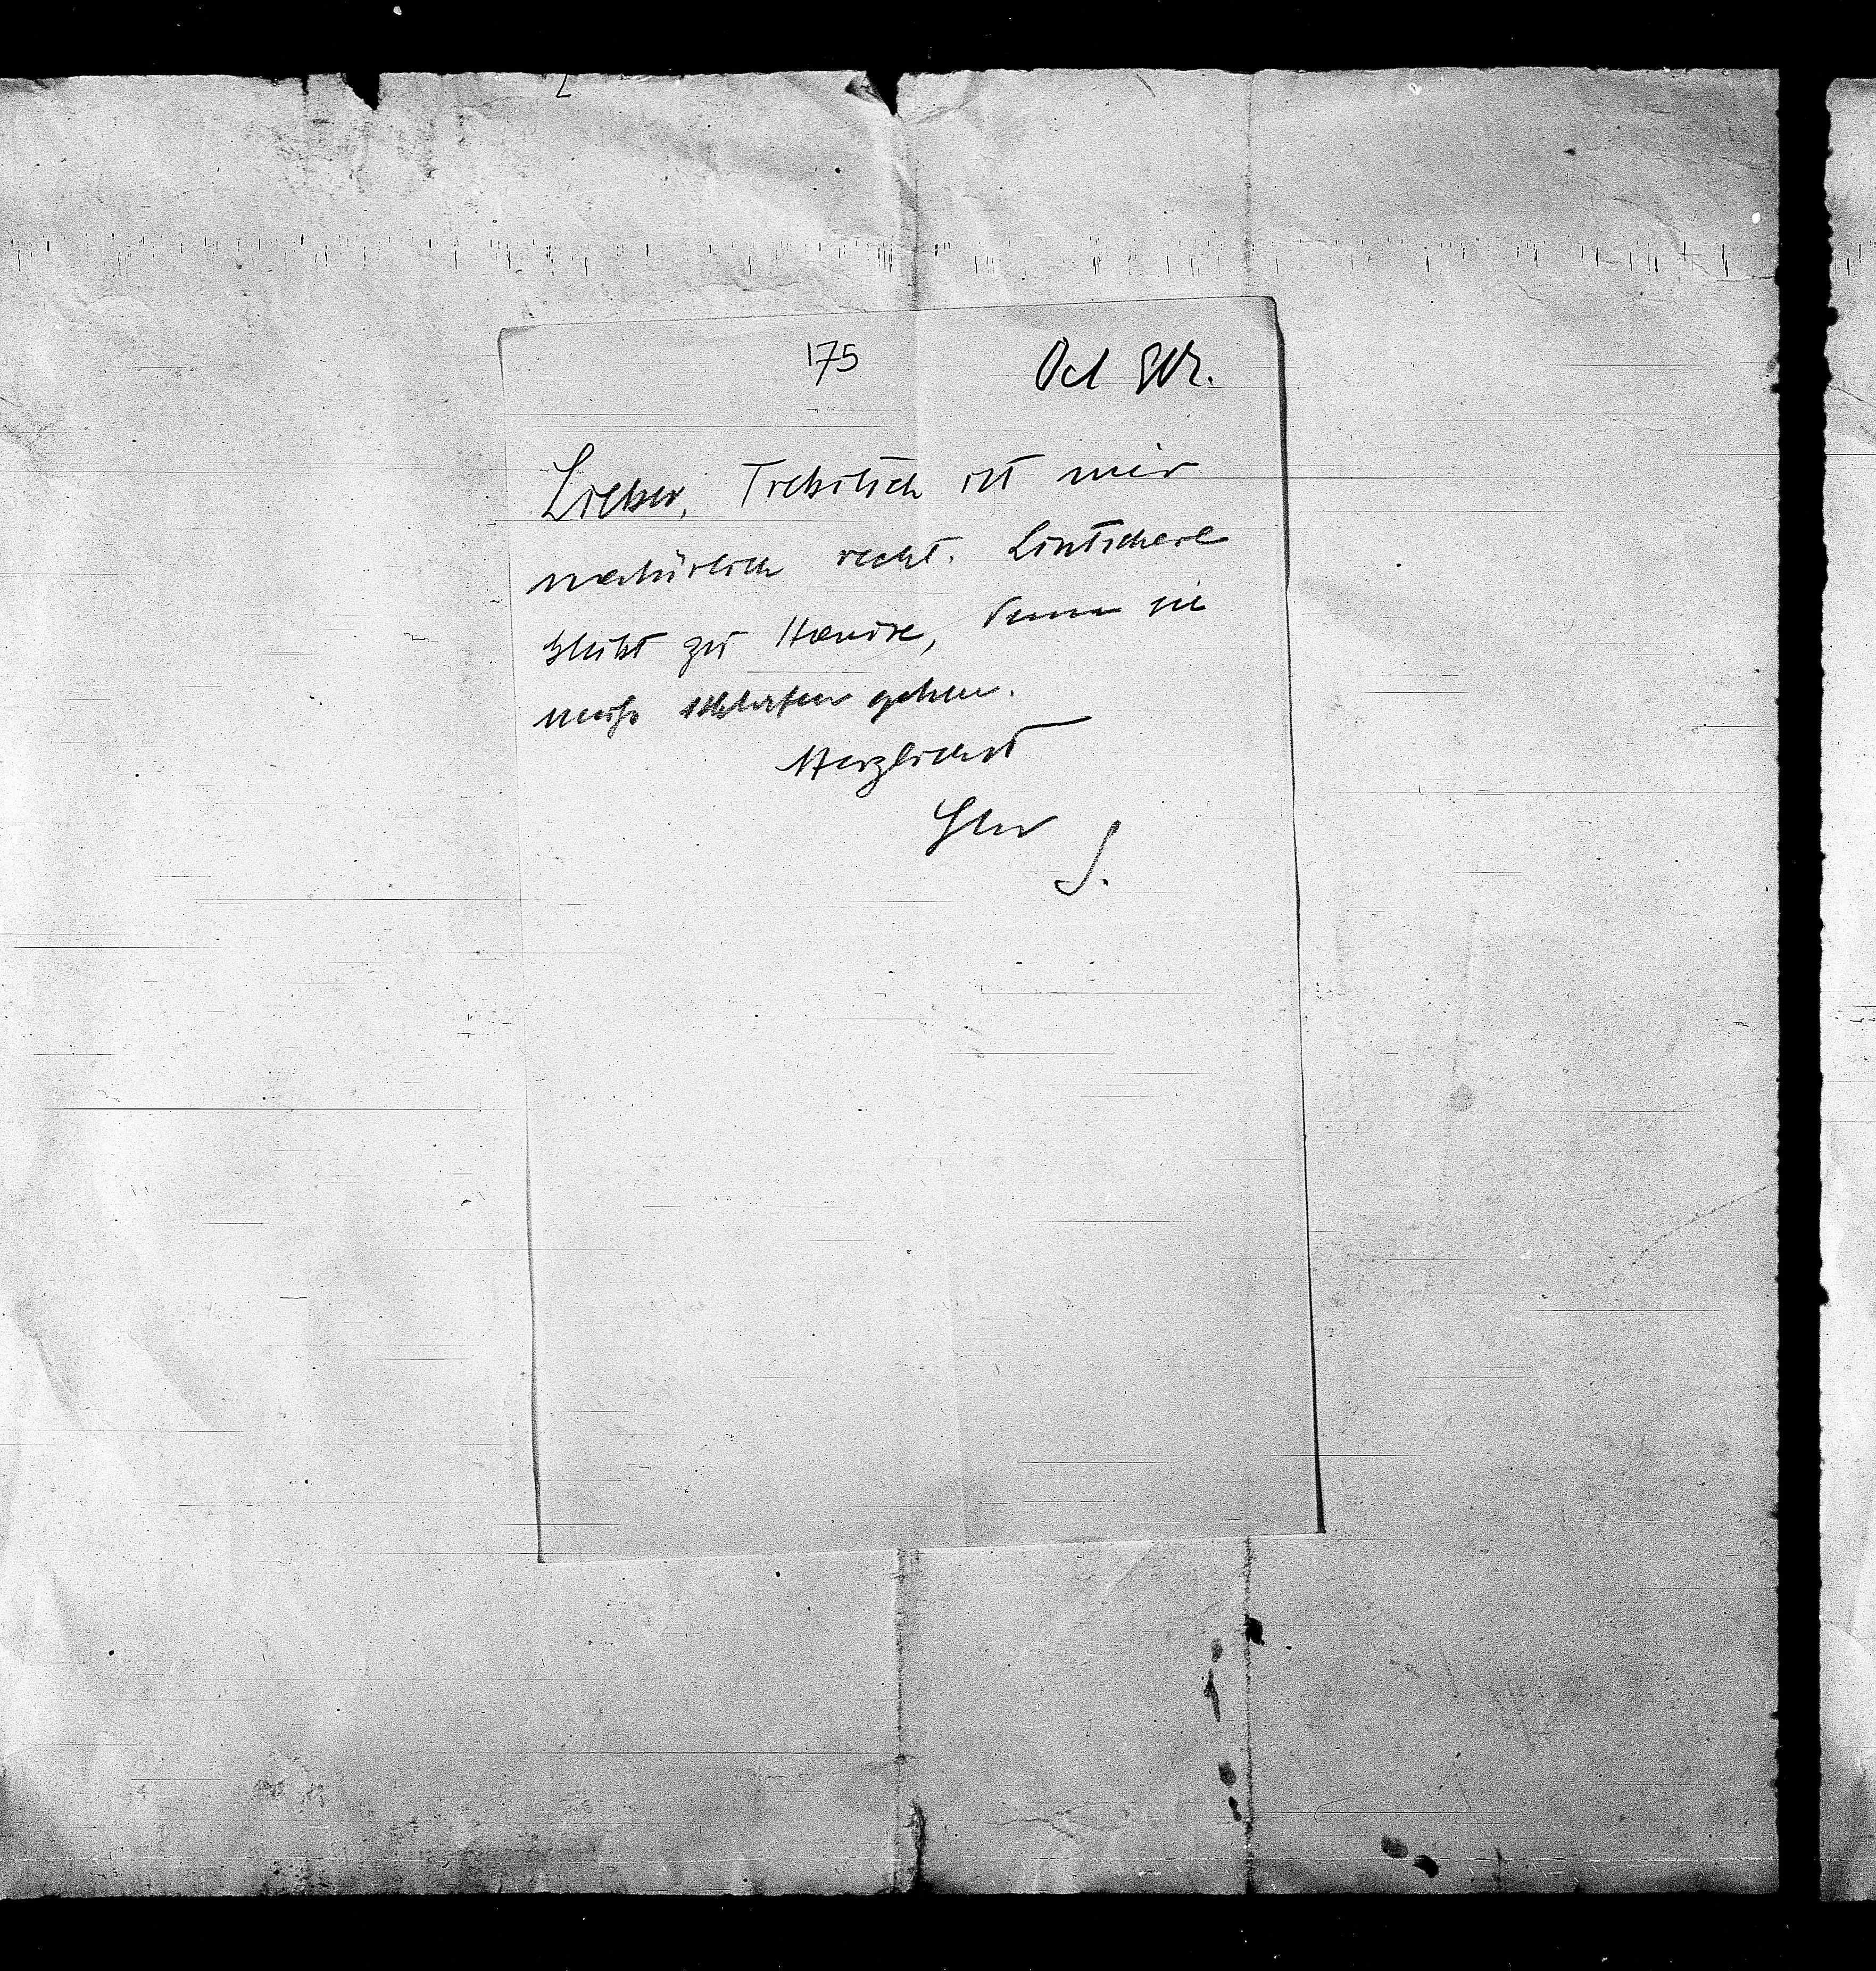 175
Oct 902.
Lieber, Trebitsch ist mir
natürlich recht. Lintscherl
bleibt zu Hause, denn sie
muß schlafen gehen.
Herzlichst
Ihr
S.